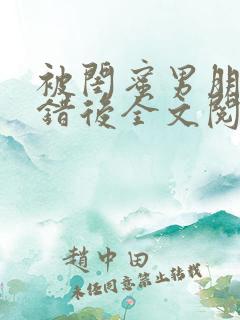 被閨蜜男朋
錯後全文閱
趙中田
未经同意禁止转载